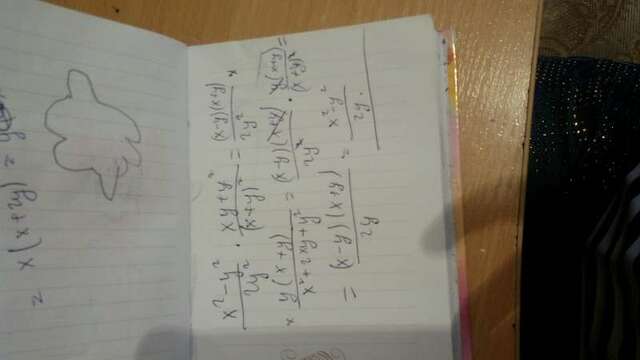 = x(x+2y) = y
(x²-y²)/(2y²) · (xy+y²)/((x+y)²) = ((x-y)(x+y))/(2y²) ×
× (y(x+y))/(x²+2xy+y²) = ((x-y)(x+y))/(2y²) · (y(x+y))/((x+y)²) =
= ((x-y)(x+y))/(2y) = (x²-y²)/(2y).